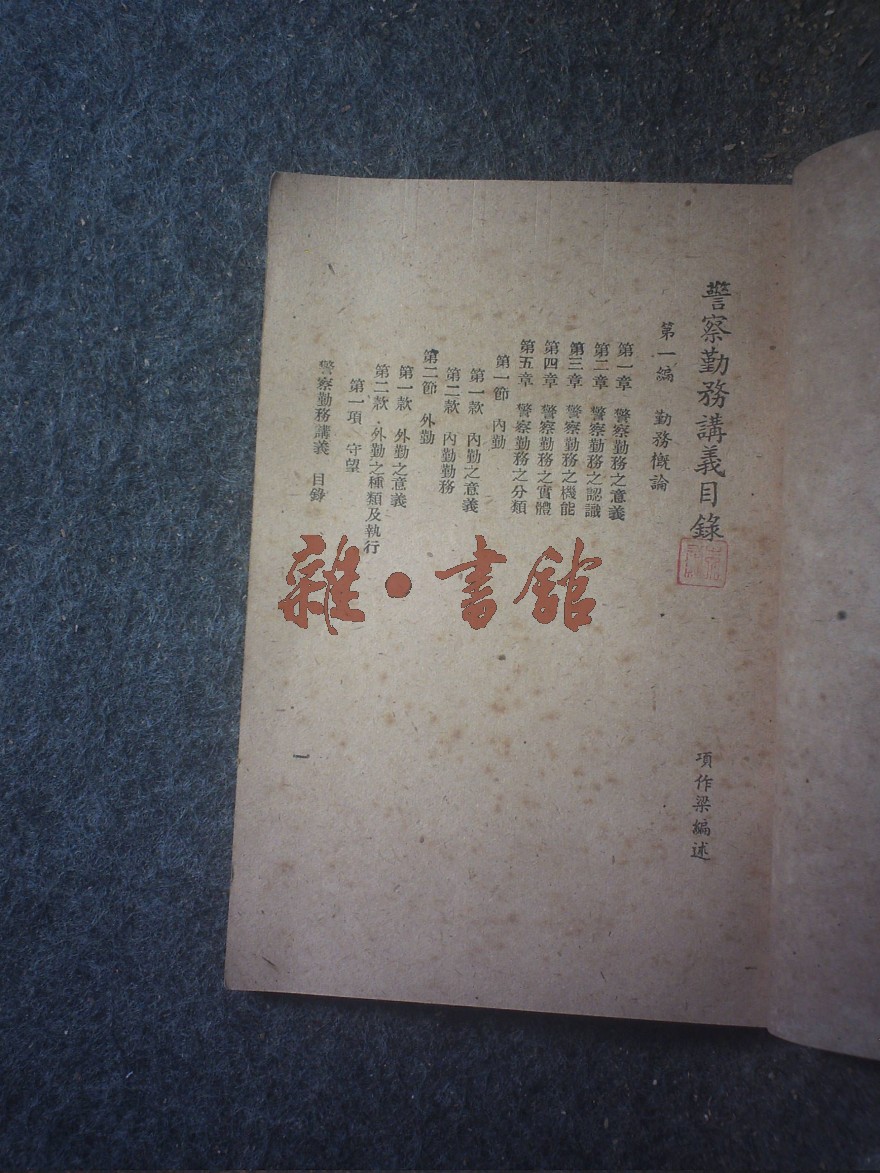 警察勤務講義目錄
項作梁編述
第一編　勤務概論
第一章　警察勤務之意義
第二章　警察勤務之認識
第三章　警察勤務之機能
第四章　警察勤務之實體
第五章　警察勤務之分類
第一節　內勤
第一款　內勤之意義
第二款　內勤勤務
第二節　外勤
第一款　外勤之意義
第二款．外勤之種類及執行
第一項　守望
警察勤務講義　目錄
一
雜•書館